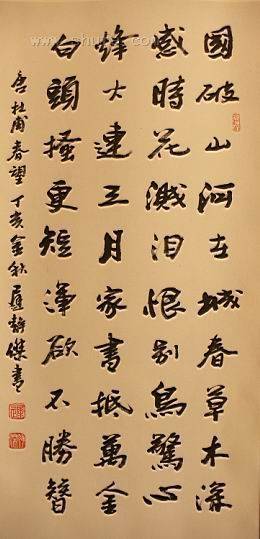 國破山河在城春草木深
感時花濺泪恨别鳥驚心
烽火連三月家書抵萬金
白頭搔更短渾欲不勝簪
唐杜甫春望丁亥金秋傑書